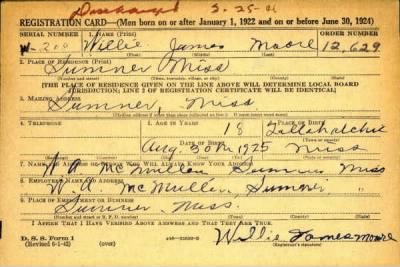 Discharged 3-25-46
REGISTRATION CARD—(Men born on or after January 1, 1922 and on or before June 30, 1924)
SERIAL NUMBER 1. NAME (Print) ORDER NUMBER
W-200 Willie James Moore 12,629
2. PLACE OF RESIDENCE (Print)
Sumner Miss
(Number and street) (Town, township, village, or city) (County) (State)
[THE PLACE OF RESIDENCE GIVEN ON THE LINE ABOVE WILL DETERMINE LOCAL BOARD
JURISDICTION; LINE 2 OF REGISTRATION CERTIFICATE WILL BE IDENTICAL]
3. MAILING ADDRESS
Sumner, Miss
4. TELEPHONE 5. AGE IN YEARS 6. PLACE OF BIRTH
18 Tallahatchie
DATE OF BIRTH
Aug. 30 1925 Miss
7. NAME AND ADDRESS OF PERSON WHO WILL ALWAYS KNOW YOUR ADDRESS
W. A. McMullen Sumner Miss
8. EMPLOYER'S NAME AND ADDRESS
W. A. McMullen, Sumner "
9. PLACE OF EMPLOYMENT OR BUSINESS
Sumner Miss.
(Number and street or R. F. D. number) (Town) (County) (State)
I AFFIRM THAT I HAVE VERIFIED ABOVE ANSWERS AND THAT THEY ARE TRUE.
D. S. S. Form 1
(Revised 6-1-42) Willie James Moore
(Registrant's signature)